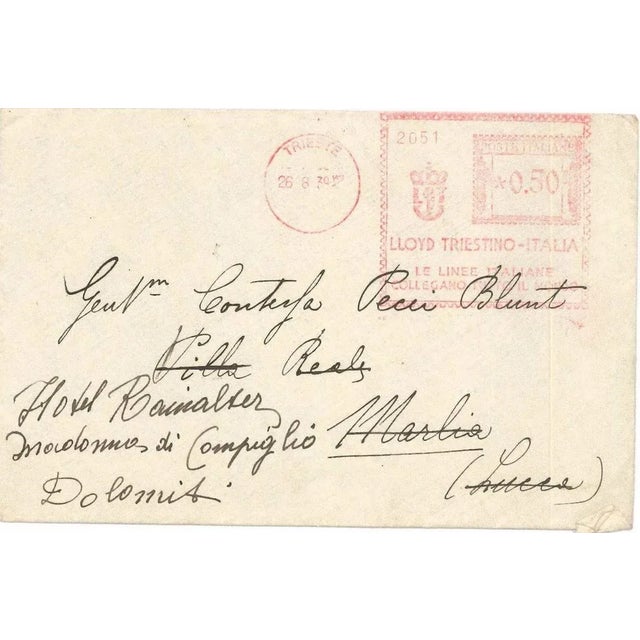 TRIESTE
26 8 39
2051
POSTE ITALIANE
*0.50
LLOYD TRIESTINO-ITALIA
LE LINEE ITALIANE
COLLEGANO
Gentm Contessa Pecci Blunt
Villa Reale
Hotel Rainalter
Marlia
Madonna di Campiglio
(Lucca)
Dolomiti